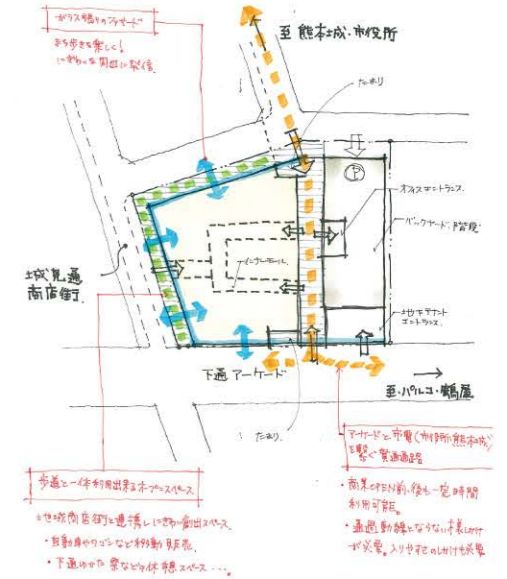 ガラス張りのファサード
まち歩きを楽しく!
にぎわいを周辺に発信
至 熊本城・市役所
たまり
オフィスエントランス
バックヤード、階段
インナーモール
城見通
商店街
地下テナント
エントランス
下通アーケード
至・パルコ・鶴屋
たまり
アーケードと市電(市役所・熊本城)
を繋ぐ貫通通路
・商業OPEN前、後も一定時間
利用可能。
・通過動線とならない様しかけ
が必要。入りやすさのしかけも必要
歩道と一体利用出来るオープンスペース
商店街と連携しにぎわい創出スペース
・自動車やワゴンなど移動販売
・下通ゆかた祭など休憩スペース・・・。